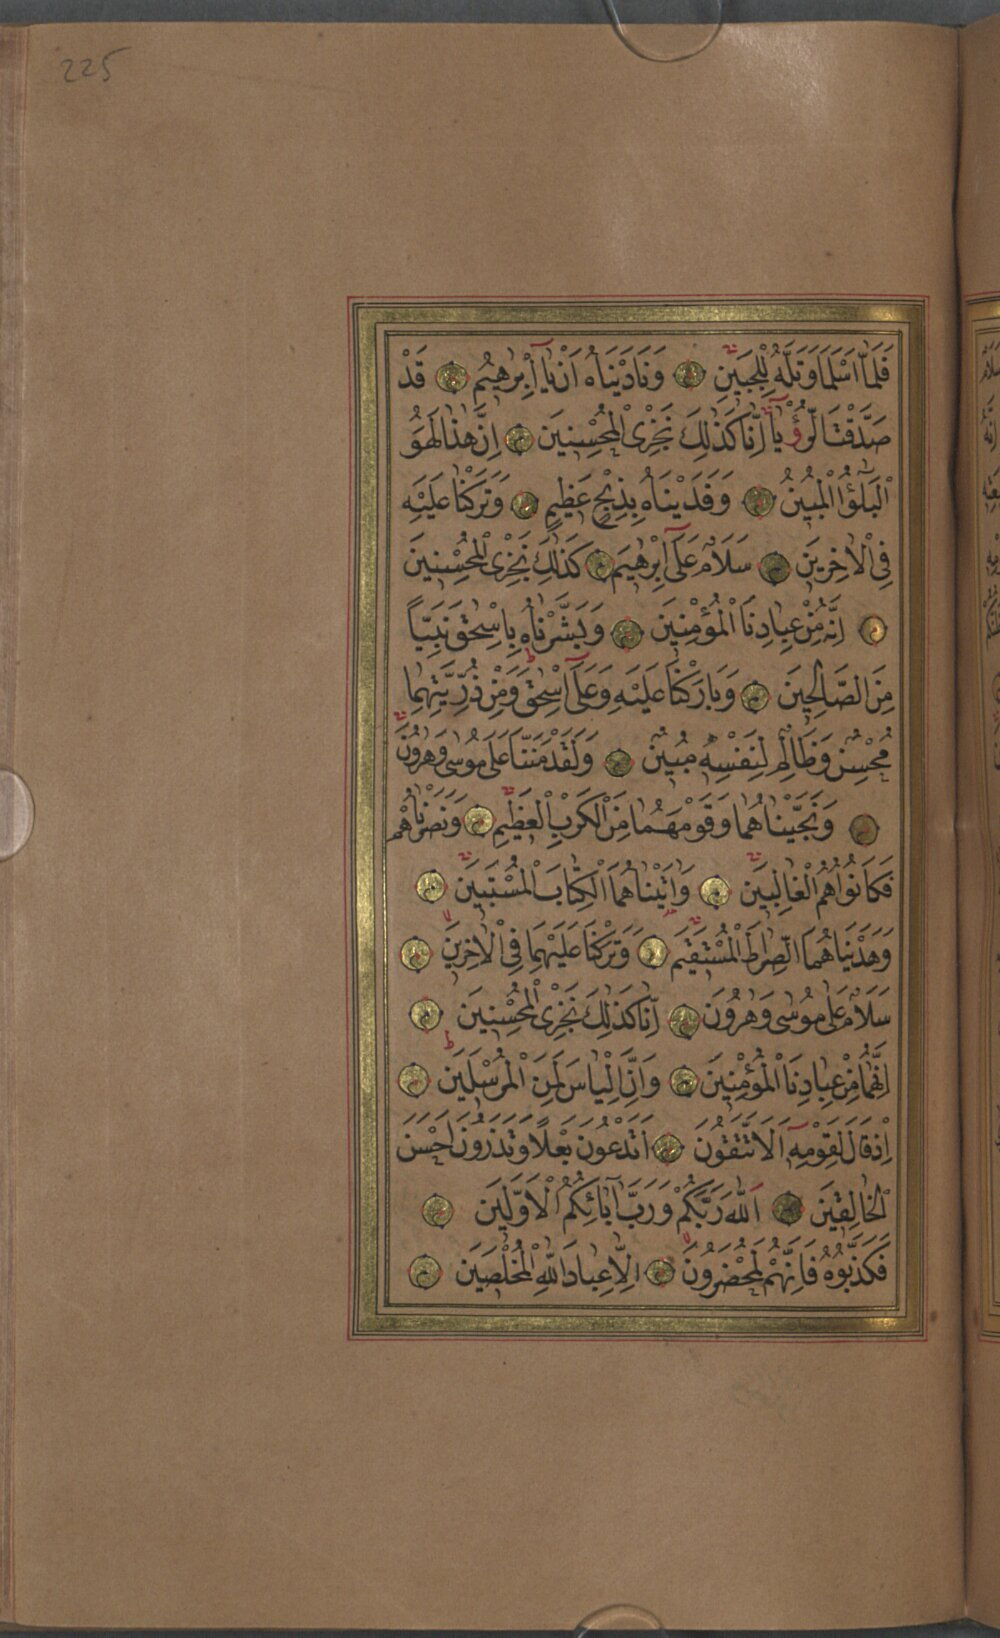 225
فَلَمَّا اَسْلَمَا وَتَلَّهُ لِلْجَبِينِ وَنَادَيْنَاهُ اَنْ يَا اِبْرٰهِيمُ قَدْ
صَدَّقْتَ الرُّؤْيَا اِنَّا كَذٰلِكَ نَجْزِى الْمُحْسِنِينَ اِنَّ هٰذَا لَهُوَ
الْبَلٰٓؤُا الْمُبِينُ وَفَدَيْنَاهُ بِذِبْحٍ عَظِيمٍ وَتَرَكْنَا عَلَيْهِ
فِى الْاٰخِرِينَ سَلَامٌ عَلٰٓى اِبْرٰهِيمَ كَذٰلِكَ نَجْزِى الْمُحْسِنِينَ
اِنَّهُ مِنْ عِبَادِنَا الْمُؤْمِنِينَ وَبَشَّرْنَاهُ بِاِسْحٰقَ نَبِيًّا
مِنَ الصَّالِحِينَ وَبَارَكْنَا عَلَيْهِ وَعَلٰٓى اِسْحٰقَ وَمِنْ ذُرِّيَّتِهِمَا
مُحْسِنٌ وَظَالِمٌ لِنَفْسِهِ مُبِينٌ وَلَقَدْ مَنَنَّا عَلٰى مُوسٰى وَهٰرُونَ
وَنَجَّيْنَاهُمَا وَقَوْمَهُمَا مِنَ الْكَرْبِ الْعَظِيمِ وَنَصَرْنَاهُمْ
فَكَانُوا هُمُ الْغَالِبِينَ وَاٰتَيْنَاهُمَا الْكِتَابَ الْمُسْتَبِينَ
وَهَدَيْنَاهُمَا الصِّرَاطَ الْمُسْتَقِيمَ وَتَرَكْنَا عَلَيْهِمَا فِى الْاٰخِرِينَ
سَلَامٌ عَلٰى مُوسٰى وَهٰرُونَ اِنَّا كَذٰلِكَ نَجْزِى الْمُحْسِنِينَ
اِنَّهُمَا مِنْ عِبَادِنَا الْمُؤْمِنِينَ وَاِنَّ اِلْيَاسَ لَمِنَ الْمُرْسَلِينَ
اِذْ قَالَ لِقَوْمِهِٓ اَلَا تَتَّقُونَ اَتَدْعُونَ بَعْلًا وَتَذَرُونَ اَحْسَنَ
الْخَالِقِينَ اَللّٰهَ رَبَّكُمْ وَرَبَّ اٰبَائِكُمُ الْاَوَّلِينَ
فَكَذَّبُوهُ فَاِنَّهُمْ لَمُحْضَرُونَ اِلَّا عِبَادَ اللّٰهِ الْمُخْلَصِينَ